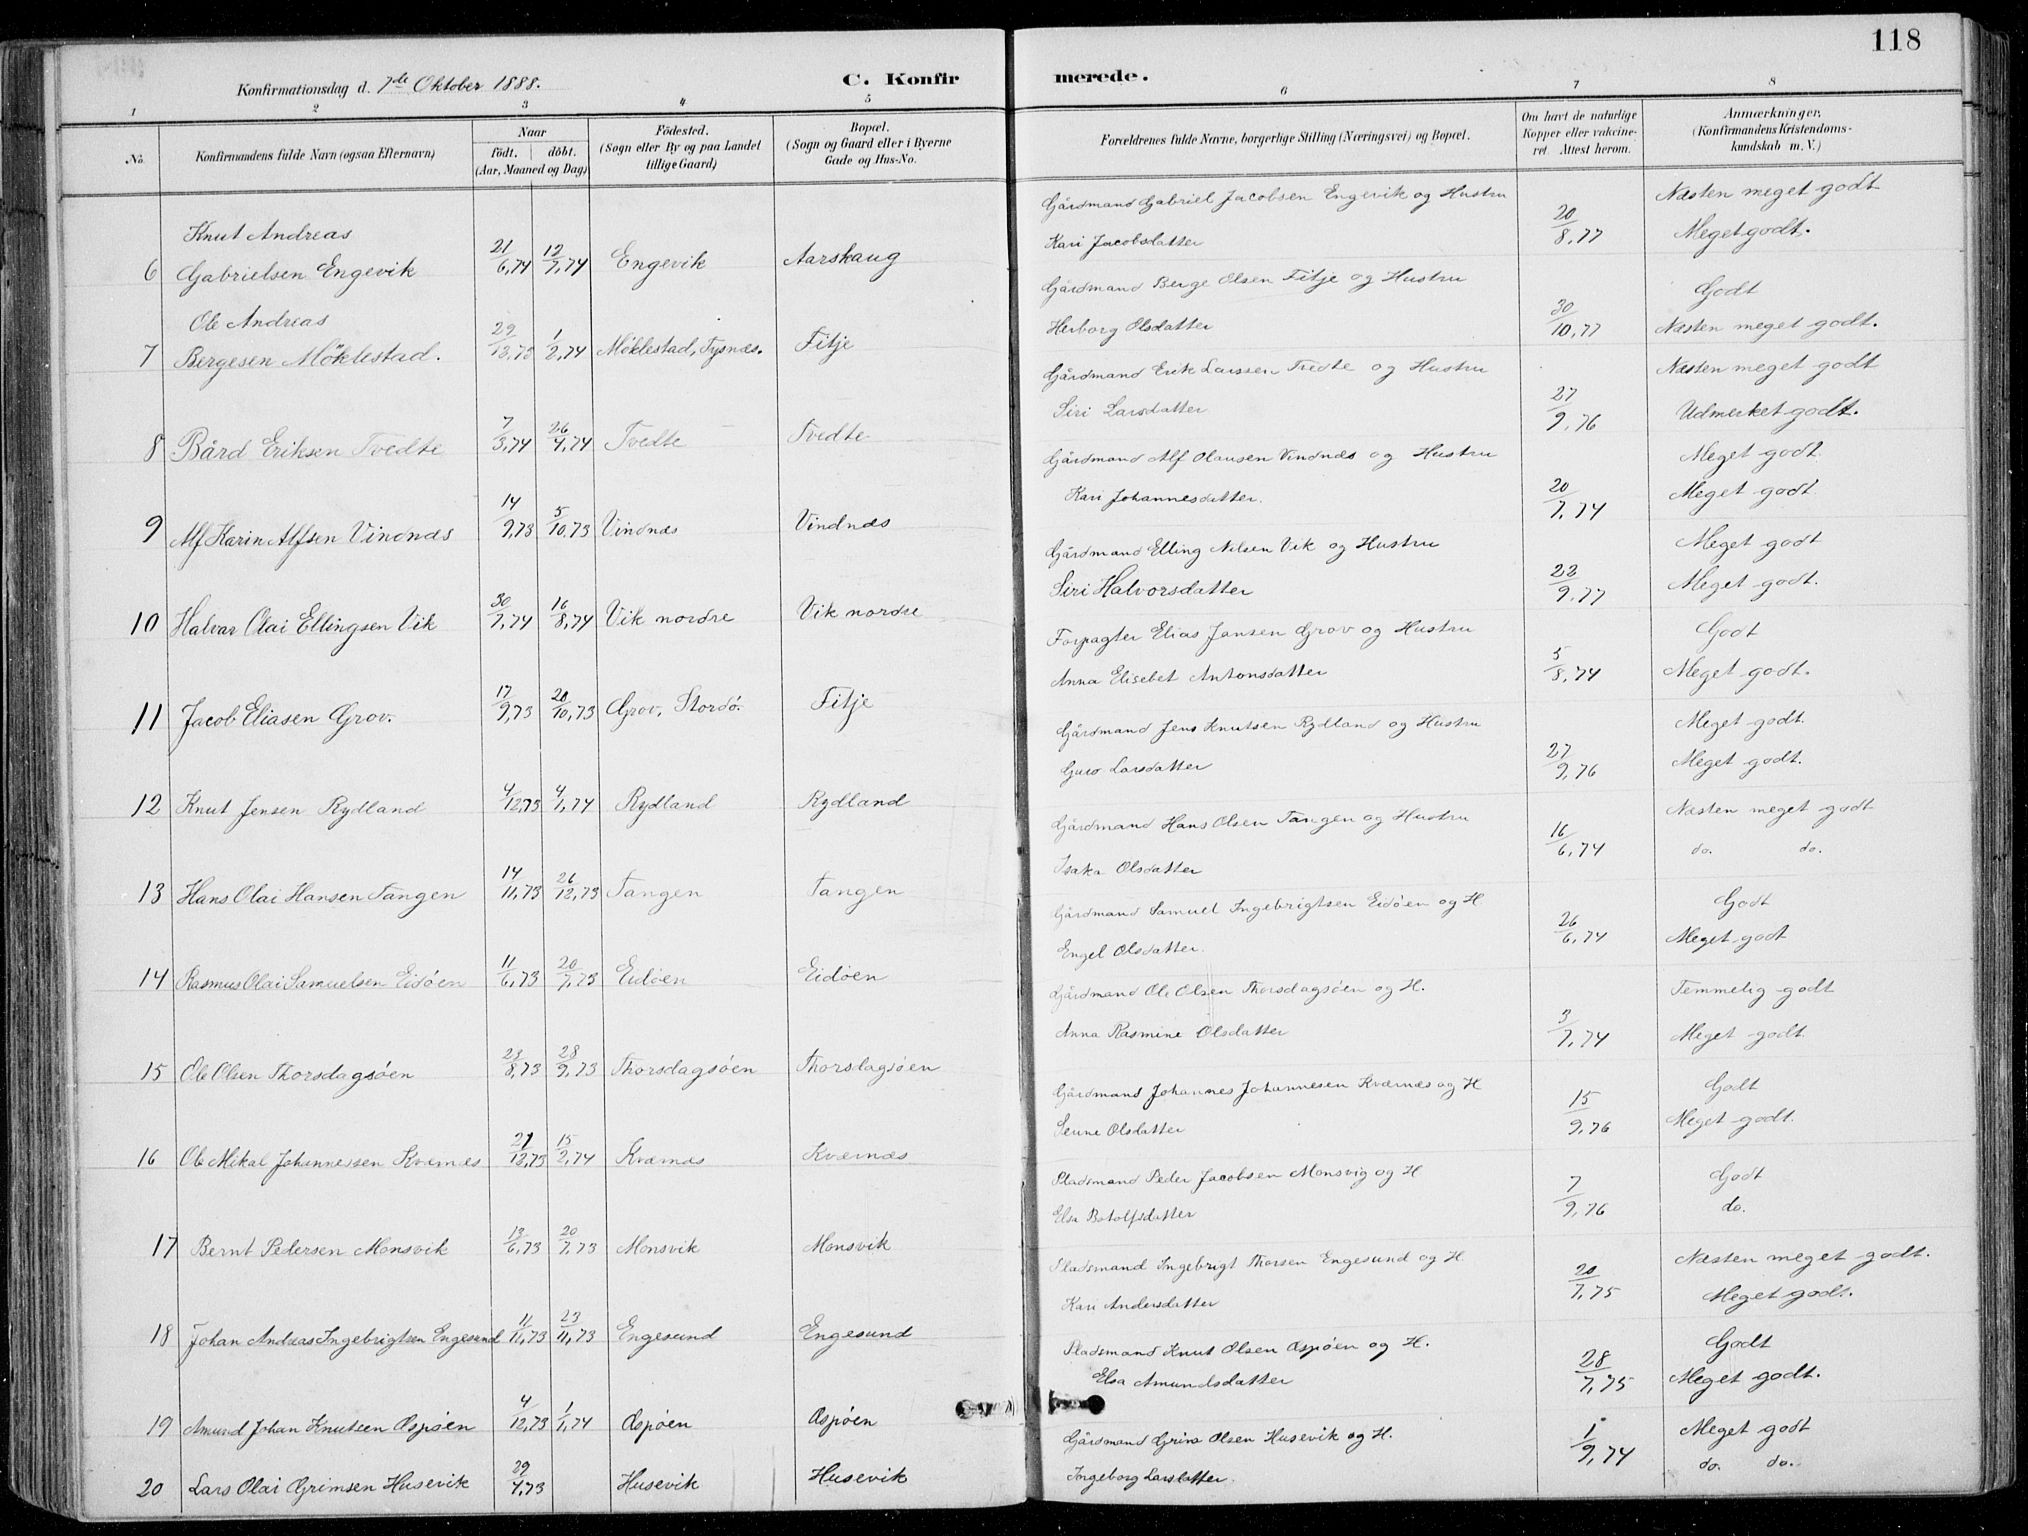 118
Konfirmationsdag d. 7de Oktober 1888.
C. Konfirmerede.
1 2 3 4 5 6 7 8
No. Konfirmandens fulde Navn (ogsaa Efternavn) Naar født. døbt. (Aar, Maaned og Dag) Födested. (Sogn eller By og paa Landet tillige Gaard) Bopæl. (Sogn og Gaard eller i Byerne Gade og Hus-No. Forældrenes fulde Navne, borgerlige Stilling (Næringsvei) og Bopæl. Om havt de naturlige Kopper eller vakcineret. Attest herom. Anmærkninger. (Konfirmandens Kristendomskundskab m. V.)
6 Knut Andreas Gabrielsen Engevik 21/6,74 12/7,74 Engevik Aarskaug Gårdmand Gabriel Jacobsen Engevik og Hustru Kari Jacobsdatter 20/8,77 Næsten meget godt Meget godt.
7 Ole Andreas Bergesen Möklestad. 29/12,73 1/2,74 Möklestad, Tysnæs. Fitje Gårdmand Berge Olsen Fitje og Hustru Herborg Olsdatter 30/10,77 Godt Næsten meget godt.
8 Bård Eriksen Tvedte 7/3,74 26/4,74 Tvedte Tvedte Gårdmand Erik Larssen Tvedte og Hustru Siri Larsdatter 27/9,76 Næsten meget godt Udmerket godt.
9 Alf Karin Alfsen Vindnæs 14/9,73 5/10,73 Vindnæs Vindnæs Gårdmand Alf Olausen Vindnæs og Hustru Kari Johannesdatter. 20/7,74 Meget godt Meget godt
10 Halvar Olai Ellingsen Vik 30/7,74 16/8,74 Vik nordre Vik nordre Gårdmand Elling Nilsen Vik og Hustru Siri Halvorsdatter 22/9,77 Meget godt Meget godt.
11 Jacob Eliasen Grov. 17/9,73 20/10,73 Grov, Stordö. Fitje Forpagter Elias Jansen Grov og Hustru Anna Elisebet Antonsdatter 5/8,74 Godt Meget godt.
12 Knut Jensen Rydland 4/12,73 4/1,74 Rydland Rydland Gårdmand Jens Knutsen Rydland og Hustru Guro Larsdatter 27/9,76 Meget godt. Meget godt.
13 Hans Olai Hansen Tangen 14/11,73 26/12,73 Tangen Tangen Gårdmand Hans Olsen Tangen og Hustru Isaka Olsdatter 16/6,74 Næsten meget godt do. do.
14 Rasmus Olai Samuelsen Eidöen 11/6,73 20/7,73 Eidöen Eidöen Gårdmand Samuel Ingebrigtsen Eidöen og H Engel Olsdatter. 26/6,74 Godt Meget godt
15 Ole Olsen Thorsdagsöen 23/8,73 28/9,73 Thorsdagsöen Thorsdagsöen Gårdmand Ole Olsen Thorsdagsöen og H. Anna Rasmine Olsdatter 3/7,74 Temmelig godt Meget godt
16 Ole Mikal Johannessen Kværnæs 21/12,73 15/2,74 Kværnæs Kværnæs Gårdmand Johannes Johannesen Kværnæs og H Olsdatter 15/9,76 Godt Meget godt.
17 Bernt Pedersen Monsvik 13/6,73 20/7,73 Monsvik Monsvik Pladsmand Peder Jacobsen Monsvig og H Elsa Botolfsdatter 7/9,76 Godt do.
18 Johan Andreas Ingebrigtsen Engesund 11/11,73 23/11,73 Engesund Engesund Pladsmand Ingebrigt Thorsen Engesund og H. Kari Andersdatter 20/7,75 Næsten meget godt. Meget godt.
19 Amund Johan Knutsen Ospöen 4/12,73 1/1,74 Ospöen Ospöen Pladsmand Knut Olsen Ospöen og H. Elsa Amundsdatter 28/7,75 Godt Meget godt.
20 Lars Olai Grimsen Husevik 29/4,73 Husevik Husevik Gårdmand Grim Olsen Husevik og H. Ingeborg Larsdatter. 1/9,74 Meget godt do. do.